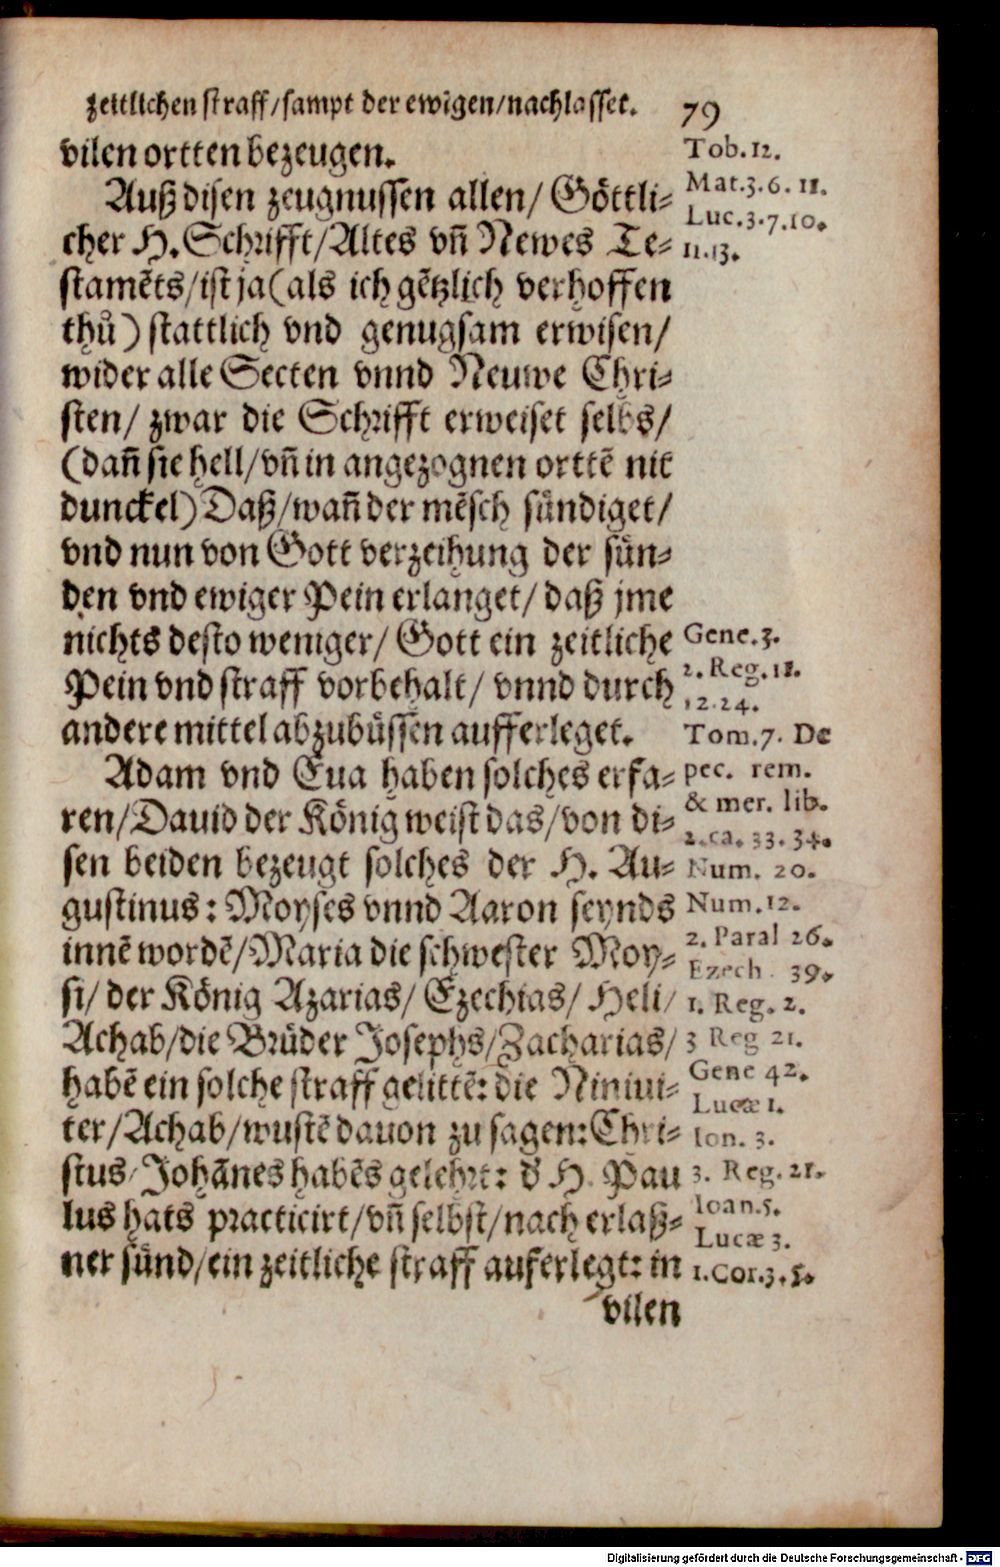 zeitlichen straff/sampt der ewigen/nachlasset. 79
vilen ortten bezeugen.
Auß disen zeugnussen allen/ Göttli⸗
cher H. Schrifft/Altes vñ Newes Te⸗
stamẽts/ist ja(als ich gẽtzlich verhoffen
thů) stattlich vnd genugsam erwisen/
wider alle Secten vnnd Neuwe Chri⸗
sten/ zwar die Schrifft erweiset selbs/
(dañ sie hell/vñ in angezognen ortẽ nit
dunckel) Daß/wañ der mẽsch sündiget/
vnd nun von Gott verzeihung der sün⸗
den vnd ewiger Pein erlanget/ daß jme
nichts desto weniger/ Gott ein zeitliche
Pein vnd straff vorbehalt/ vnnd durch
andere mittel abzubüssen aufferleget.
Adam vnd Eua haben solches erfa⸗
ren/Dauid der König weist das/von di⸗
sen beiden bezeugt solches der H. Au⸗
gustinus: Moyses vnnd Aaron seynds
innẽ wordẽ/Maria die schwester Moy⸗
si/ der König Azarias/ Ezechias/ Heli/
Achab/die Brüder Josephs/Zacharias/
habẽ ein solche straff gelittẽ: die Niniui⸗
ter/Achab/wustẽ dauon zu sagen: Chri⸗
stus/Johãnes habẽs gelehrt: d̕ H. Pau
lus hats practicirt/vñ selbst/nach erlaß⸗
ner sünd/ein zeitliche straff auferlegt: in
vilen
Tob.12.
Mat.3.6.11.
Luc.3.7.10.
11.13.
Gene.3.
2.Reg.11.
12.24.
Tom.7. De
pec. rem.
& mer. lib.
2.ca.33.34.
Num. 20.
Num.12.
2. Paral 26.
Ezech. 39.
1. Reg. 2.
3 Reg 21.
Gene 42.
Lucæ 1.
Ion. 3.
3. Reg.21.
Ioan.5.
Lucæ 3.
1.Cor.3.5.
Digitalisierung gefördert durch die Deutsche Forschungsgemeinschaft - DFG